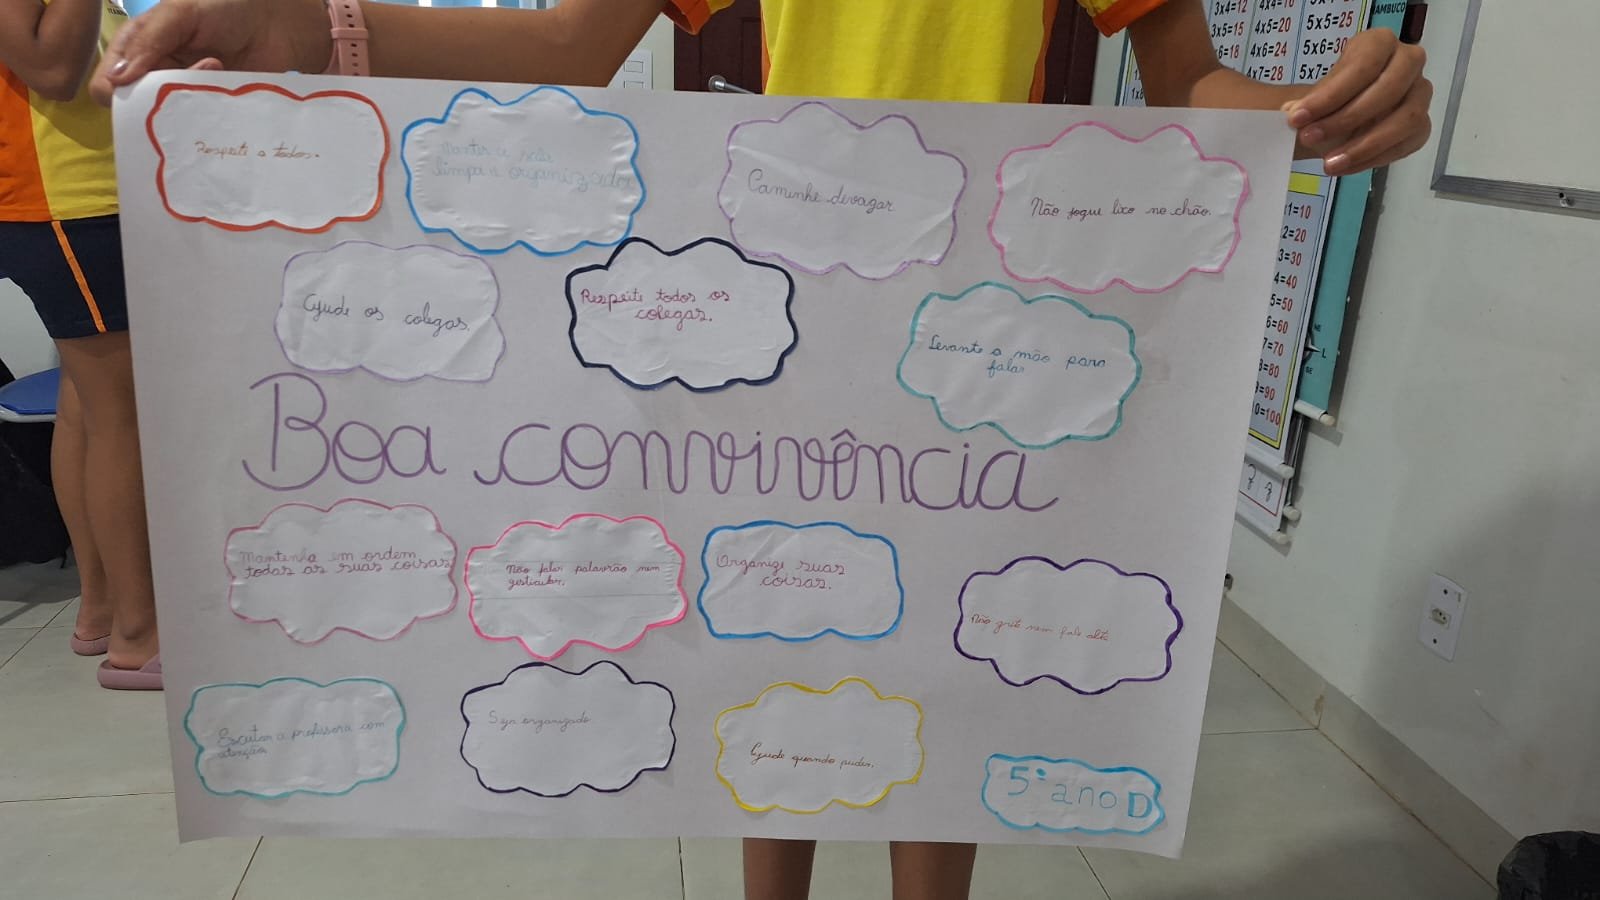 Respeite a todos.
Manter a sala
limpa e organizada
Caminhe devagar
Não jogue lixo no chão.
Ajude os colegas.
Respeite todos os
colegas.
Levante a mão para
falar
Boa convivência
Mantenha em ordem
todas as suas coisas
Não falar palavrão nem
gesticular.
Organize suas
coisas.
Não grite nem fale alto
Escutar a professora com
atenção
Seja organizado
Ajude quando puder.
5° ano D
3x4=12
4x4=16
3x5=15
4x5=20
5x5=25
4x6=24
5x6=30
4x7=28